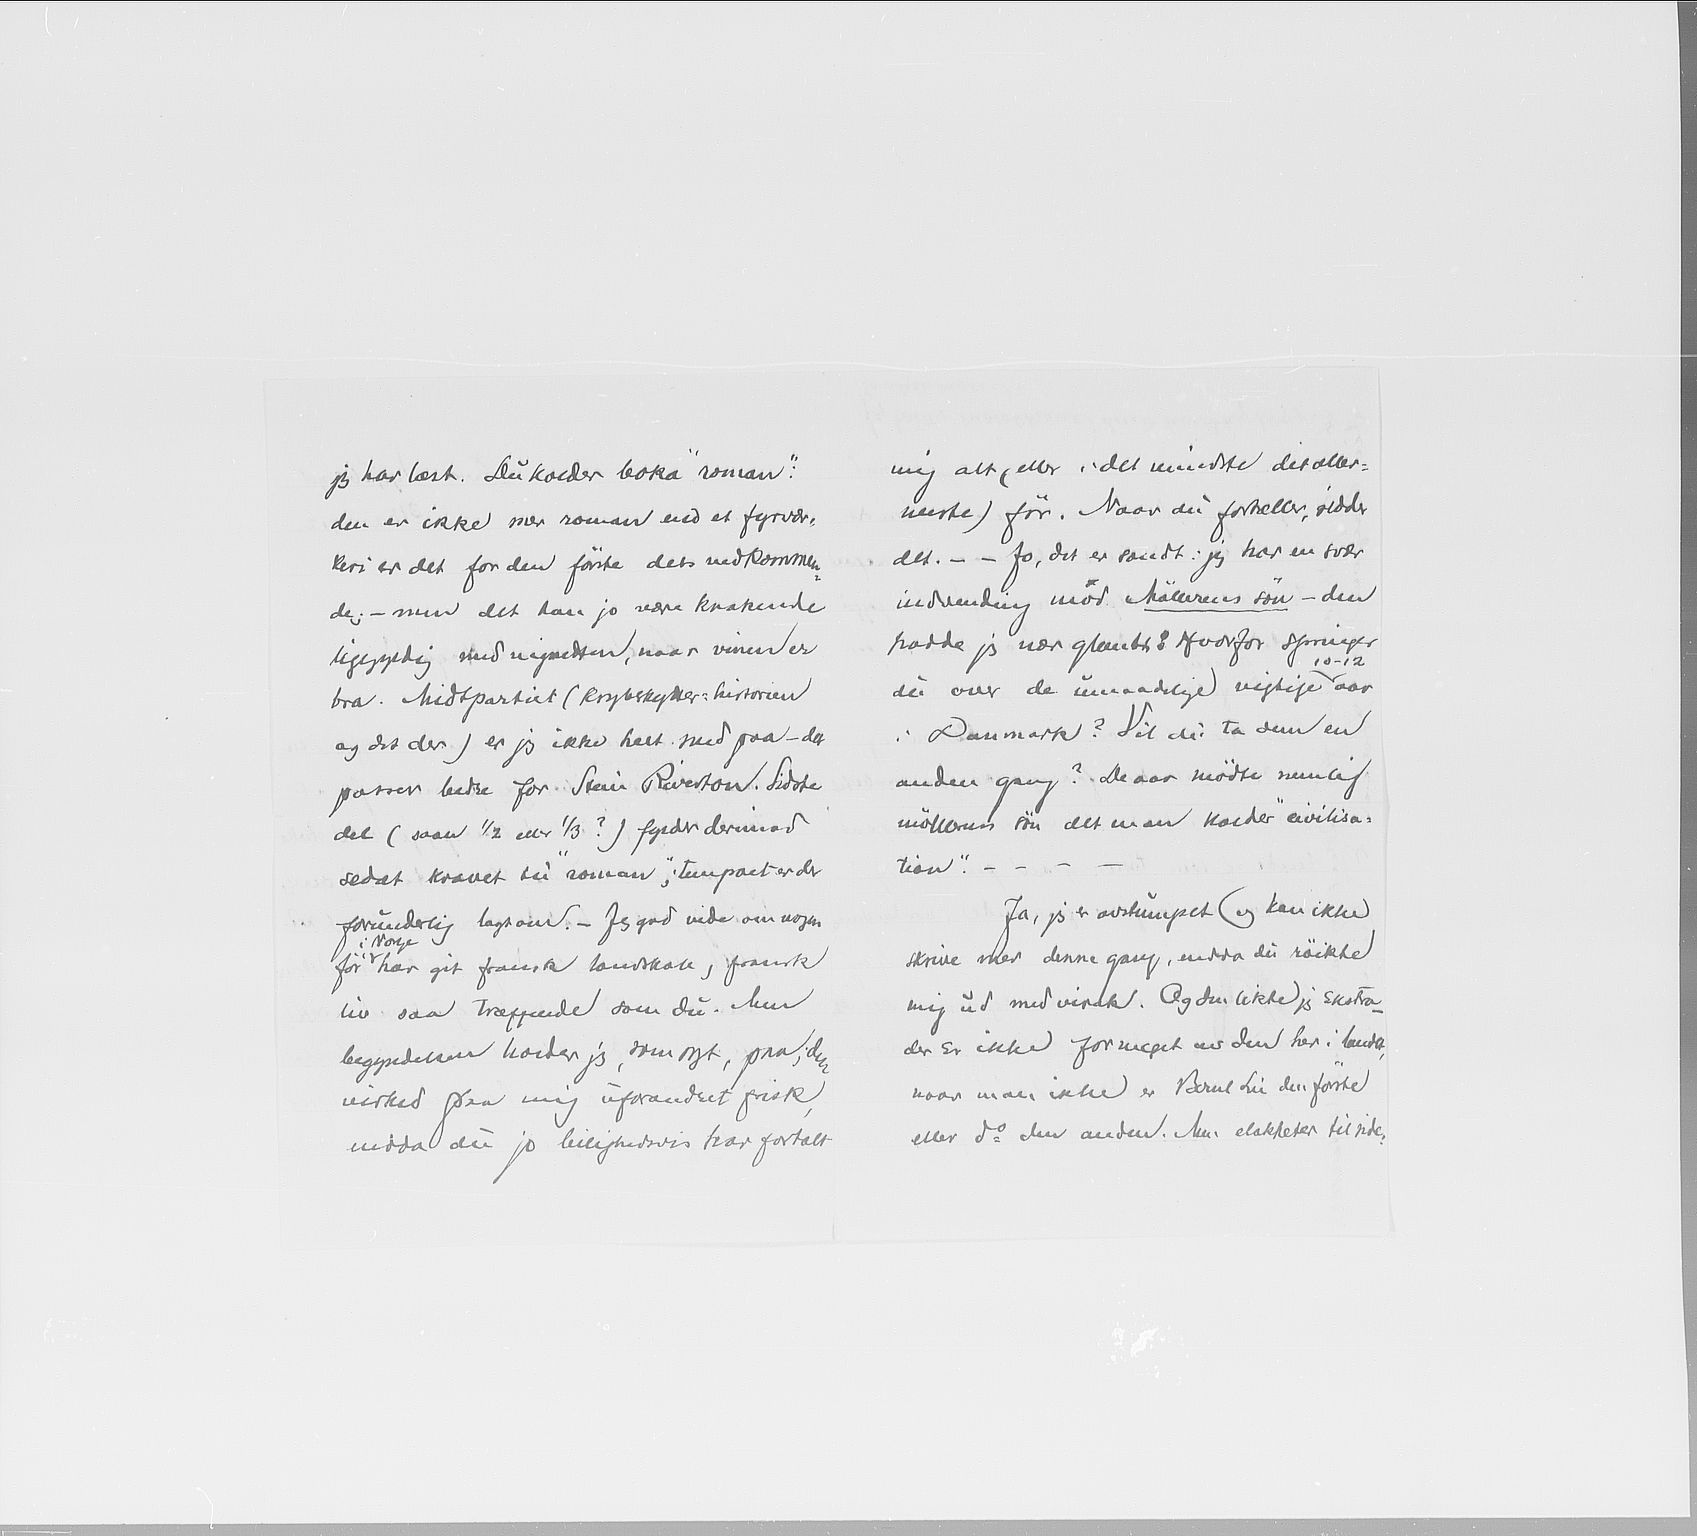 jeg har læst. Du kalder boka "roman":
den er ikke mer roman end et fyrvær=
keri er det for den første dels vedkommen=
de; – men det kan jo være knakende
ligegyldig med vignetten, naar vinen er
bra. Midtpartiet (krybskytter=historien
og det der) er jeg ikke helt med paa – det
passer bedre for Stein Riverton. Sidste
del (saan 1/2 eller 1/3?) fylder derimod
sedat kravet til "roman";
forunderlig – Jeg gad vide om nogen
før i Norge har git fransk landskab, fransk
liv saa træffende som du. Men
begyndelsen holder jeg, som sagt, paa; den
virked paa mig uforandret frisk,
endda du jo leilighedsvis har fortalt
mig alt (eller i det mindste det aller=
meste) før. Naar du fortæller, sidder
det. – – Jo, det er sandt: jeg har en svær
indvending mod Møllerens søn – den
hadde jeg nær glemt! Hvorfor springer
du over de umaadelige vigtige 10-12 aar
i Danmark? Vil du ta dem en
anden gang? De aar mødte nemlig
møllerens søn det man kalder "civilisa=
tion". – – – –
Ja, jeg er avstumpet (og kan ikke
skrive mer denne gang, endda du røikte
mig ud med virak. Og den likte jeg ekstra –
der er ikke for meget av den her i landet,
naar man ikke er Bernt Lie den første
eller do den anden. Men elakheter tilside;